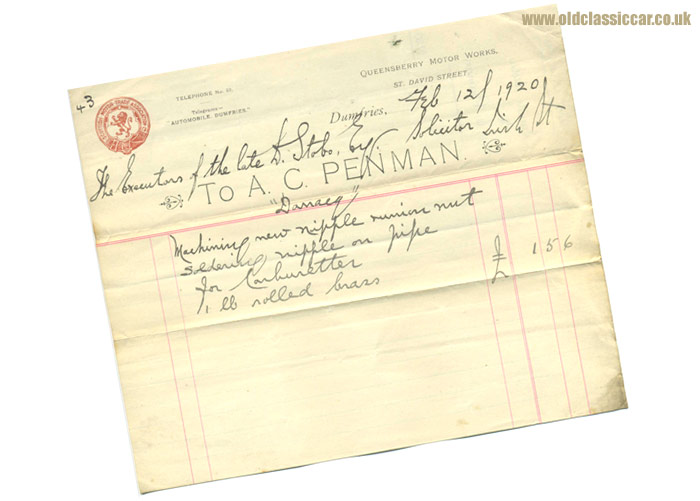 www.oldclassiccar.co.uk
43
TELEPHONE No. 25.
Telegrams—
"AUTOMOBILE, DUMFRIES."
QUEENSBERRY MOTOR WORKS,
ST. DAVID STREET,
Dumfries, Feb 12 1920
The Executors of the late D. Stobo, Esq. Solicitor Irish St
TO A. C. PENMAN.
"Darracq"
Machining new nipple & union nut
soldering nipple on pipe
for Carburetter
1 lb rolled brass £ 15 6